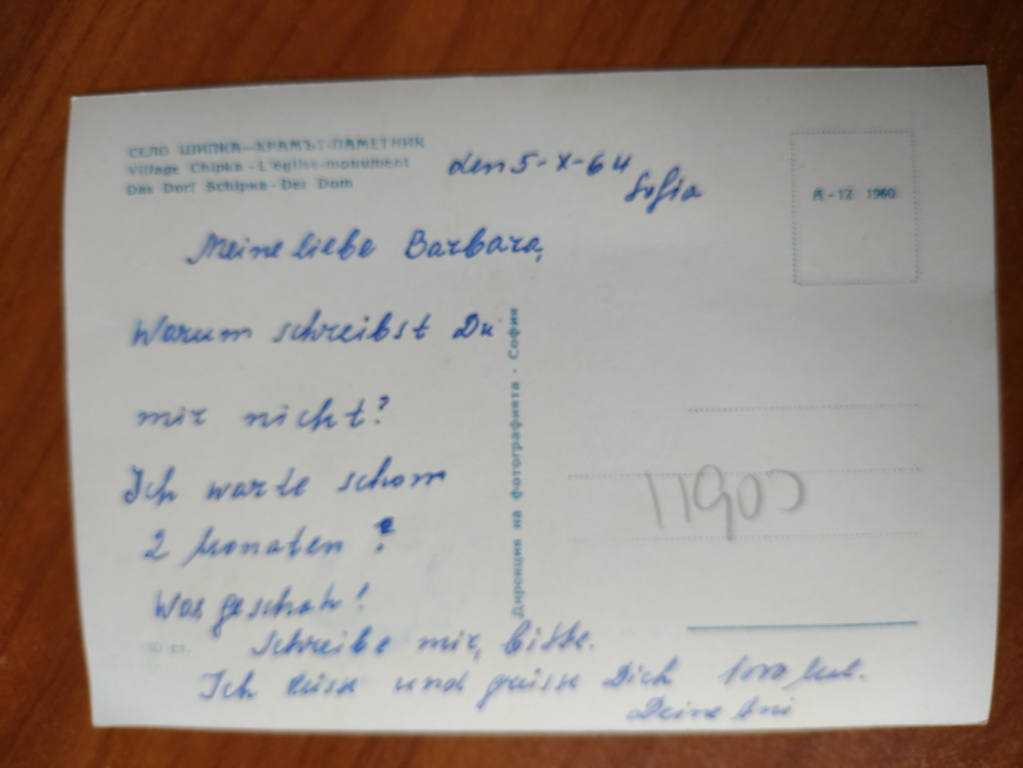 СЕЛО ШИПКА—ХРАМЪТ-ПАМЕТНИК
Village Chipka - L'église-monument
Das Dorf Schipka - Der Dom
den 5-X-64
Sofia
A - 12 1960
Meine liebe Barbara,
Warum schreibst Du
mir nicht?
Ich warte schon
2 Monaten ?
Was geschah!
Schreibe mir, bitte.
Ich küsse und grüsse Dich 1000 Mal.
Deine Ani
Дирекция на фотографията - София